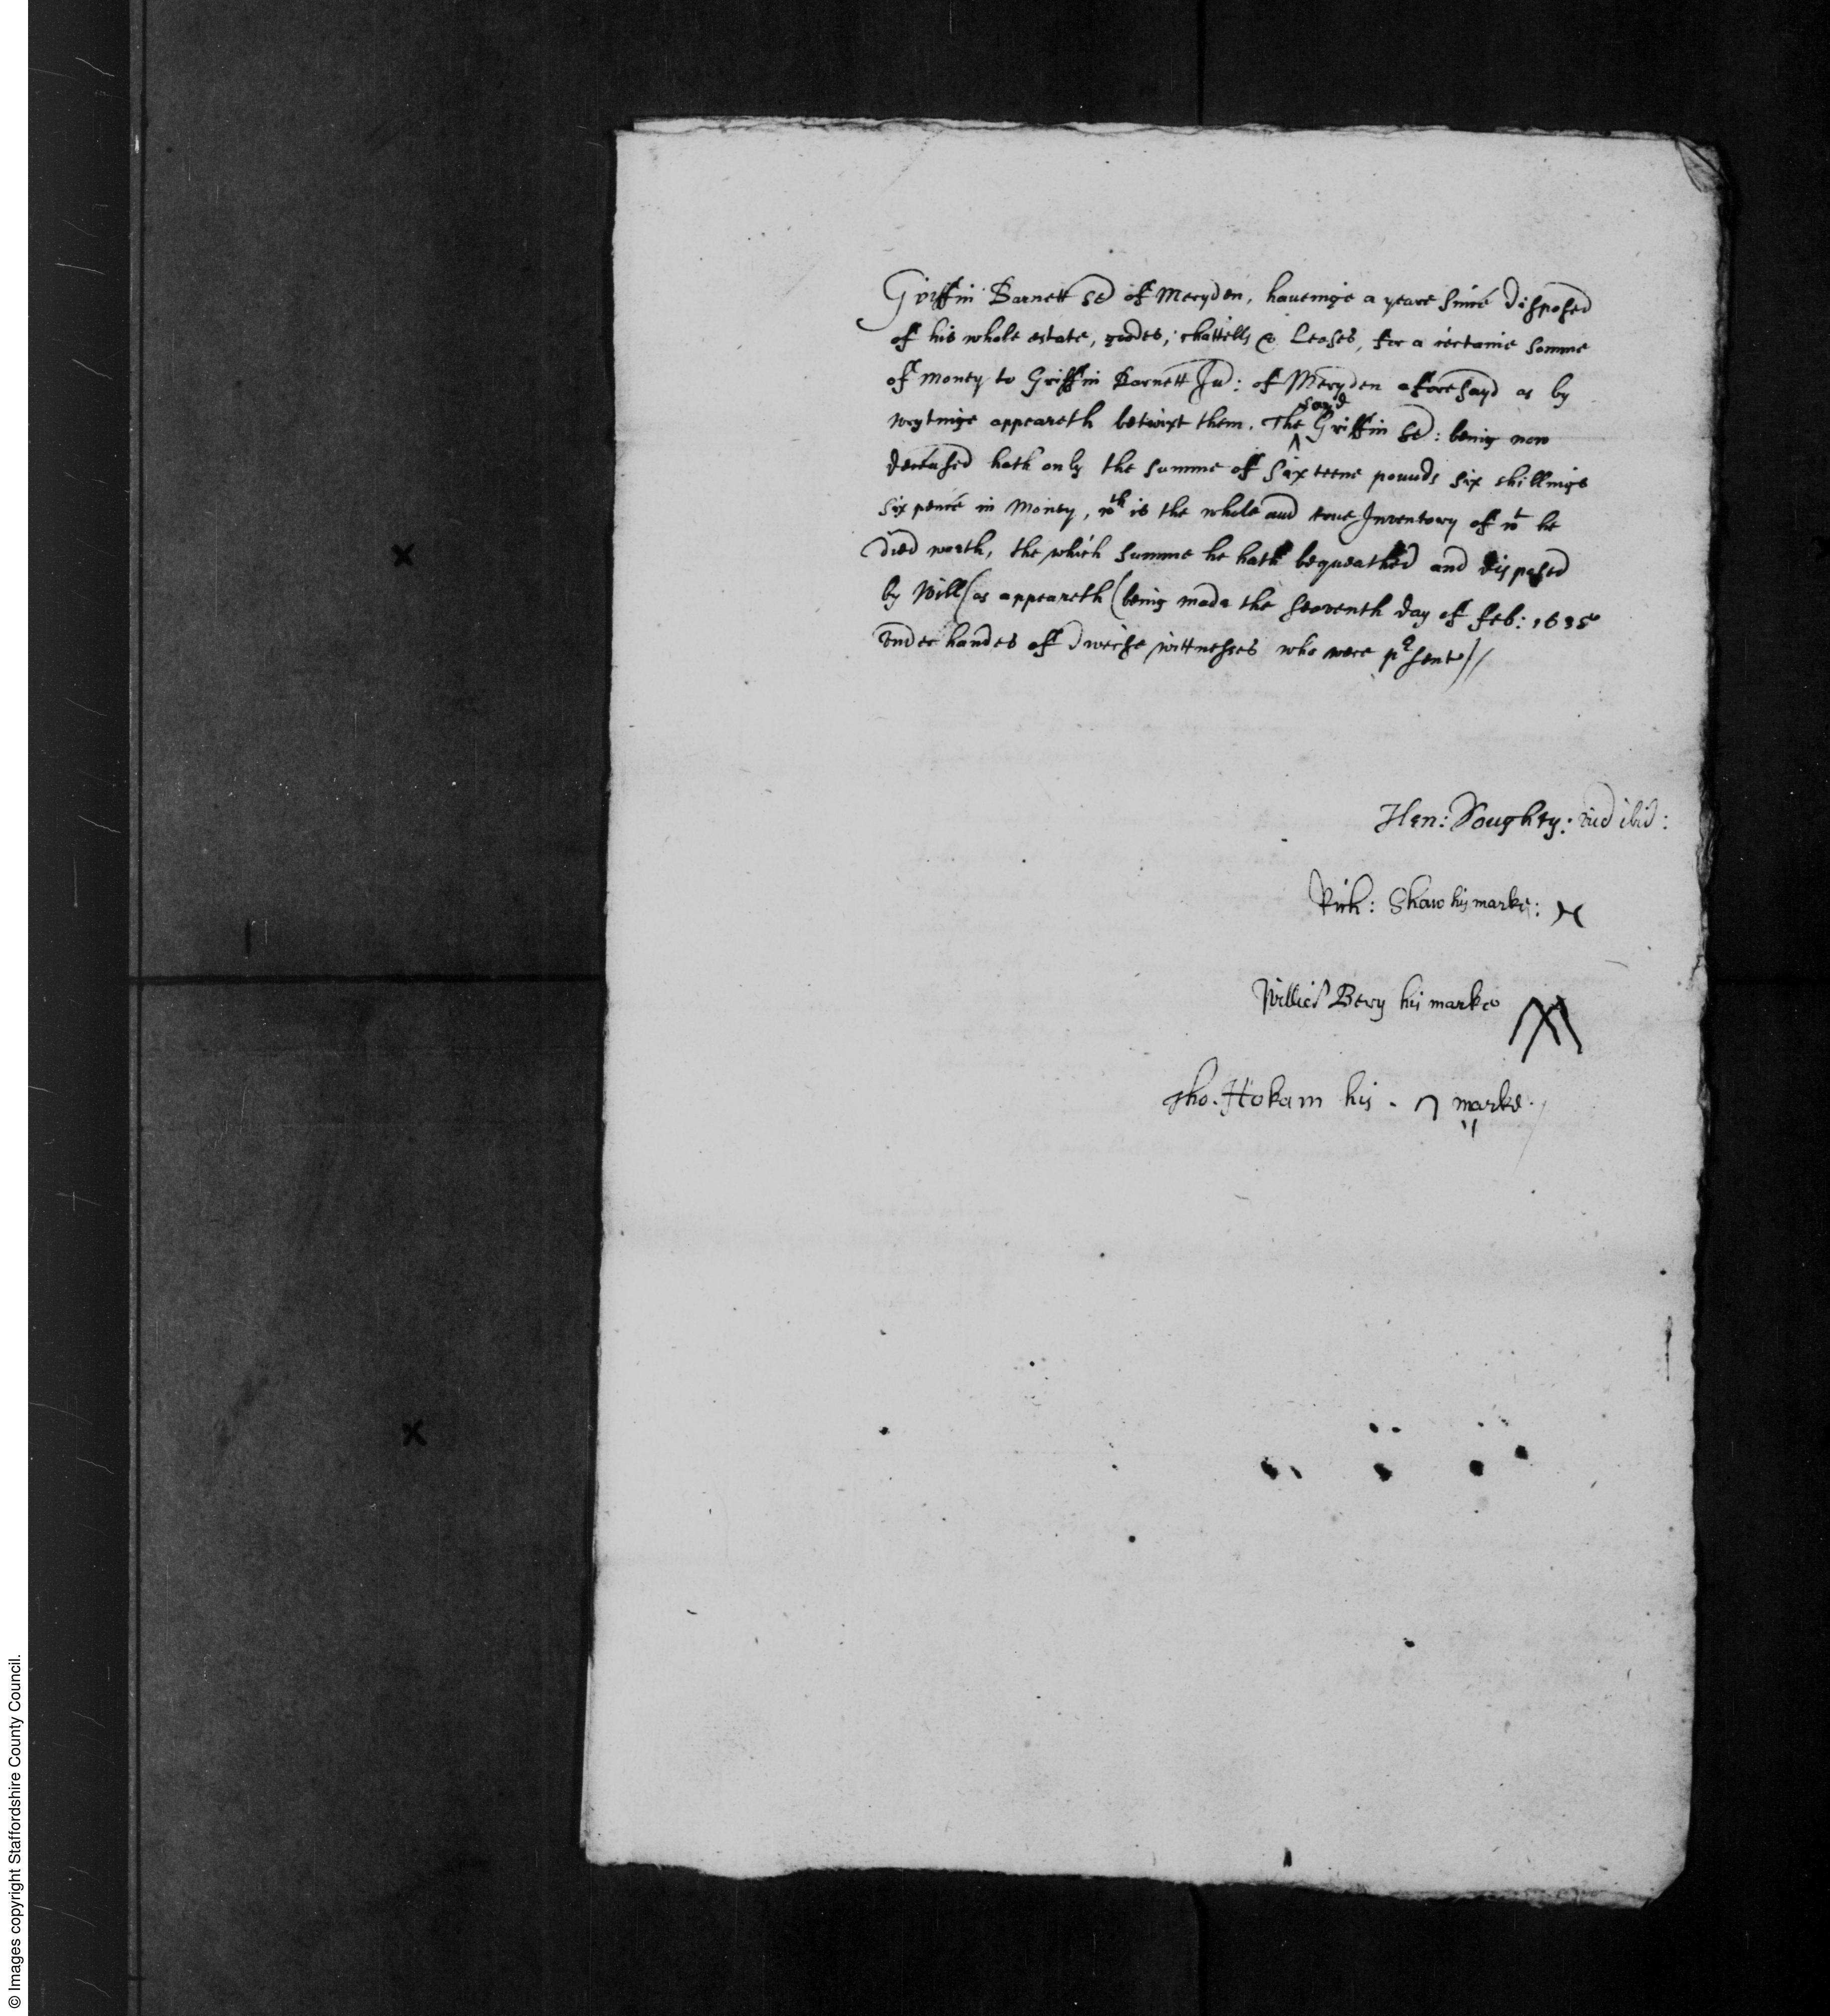 Griffin Barnett Se of Meryden, haueinge a yeare since disposed
of his whole estate, goodes, chattells & Leases, for a certaine somme
of Money to Griffin Barnett Ju: of Meryden aforesayd as by
wrytinge appeareth betwixt them. The sayd Griffin Se: being now
deceased hath only the summe of sixteene pounds six shillinge
six pence in Money, wch is the whole and true Inventory of wt he
died worth, the which summe he hath bequeathed and disposed
by Will (as appeareth (being made the seaventh day of feb: 1635
vnder handes of diverse wittnesses who were psent //
Hen: Doughty: ibid:
Rich: Shaw his marke:
Bery his marke
Tho. Hokam his marke
© Images copyright Staffordshire County Council.